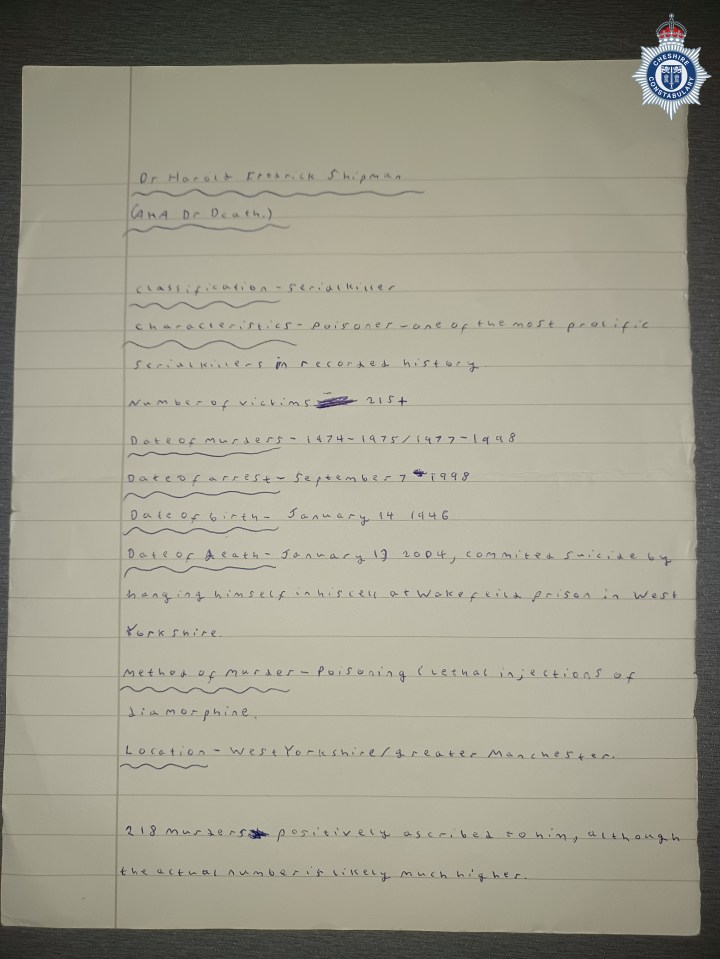 CHESHIRE CONSTABULARY
Dr Harold Fredrick Shipman
(AKA Dr Death.)
Classification - Serial killer
Characteristics - Poisoner - one of the most prolific
serial killers in recorded history
Number of victims 215+
Date of murders - 1974-1975/1977-1998
Date of arrest - September 7 1998
Date of birth - January 14 1946
Date of death - January 13 2004, commited suicide by
hanging himself in his cell at Wakefeild prison in West
Yorkshire.
Method of murder - Poisoning (lethal injections of
diamorphine.
Location - West Yorkshire/greater Manchester.
218 murders positively ascribed to him, although
the actual number is likely much higher.